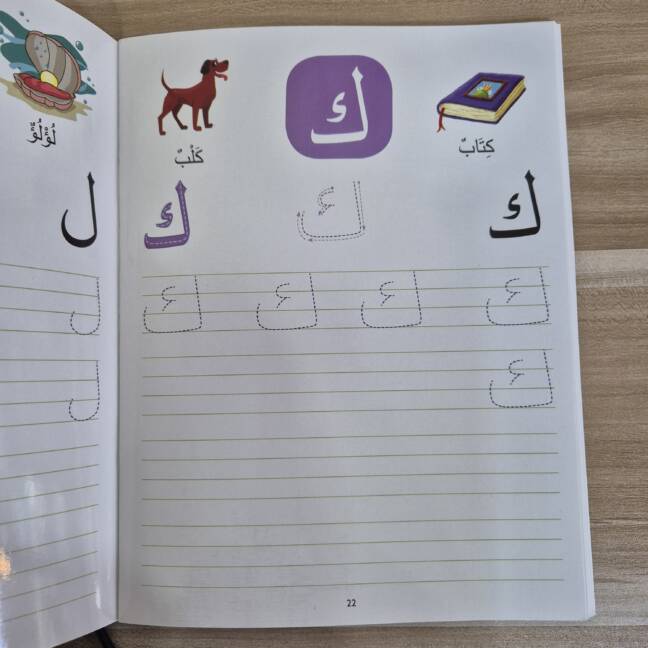 ك
كِتَابٌ كَلْبٌ
ك ك ك
ك ك ك ك
ك
22
ل
ل
ل